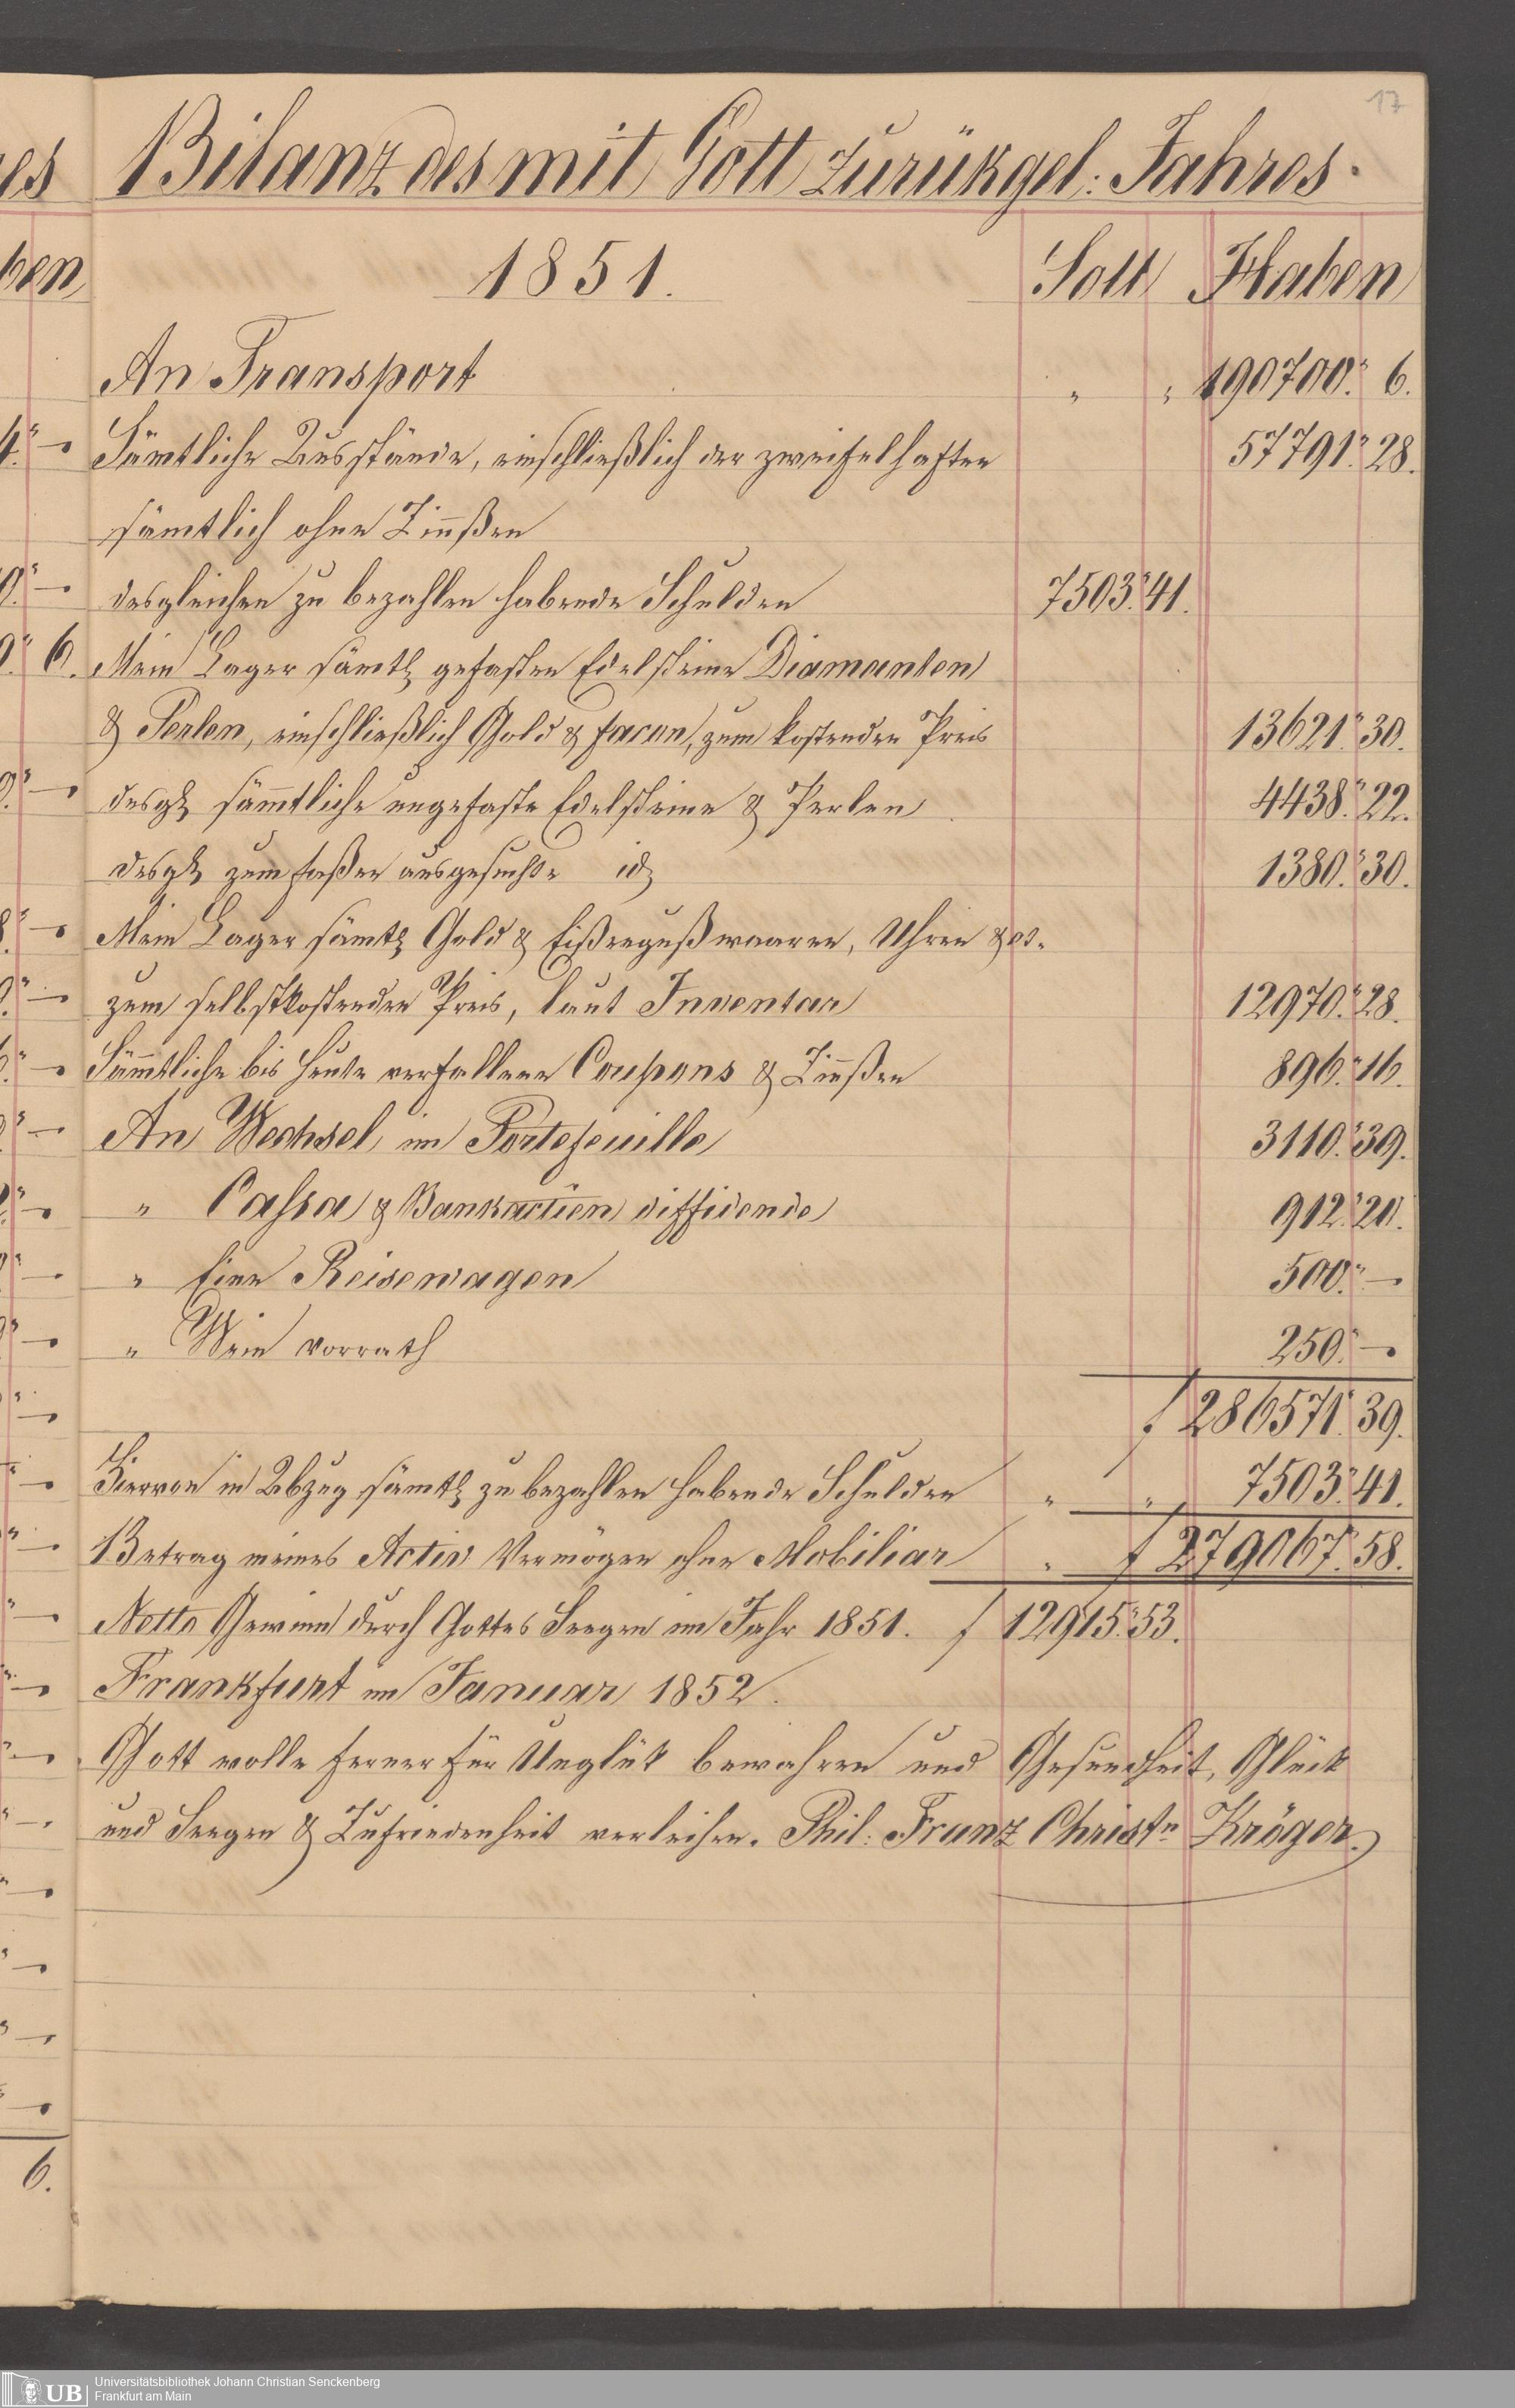 17
Bilanz des mit Gott zurükgel: Jahres.
1851. Soll Haben
An Transport " " 190700." 6.
Sämtliche Ausstände, einschließlich der zweifelhaften 57791." 28.
sämtlich ohne Zinßen
desgleichen zu bezahlen habende Schulden 7503." 41.
Mein Lager sämtl gefasten Edelsteine Diamanten
& Perlen, einschließlich Gold & facon, zum kostenden Preis 13621." 30.
desgl sämtliche ungefaste Edelsteine & Perlen 4438." 22.
desgl zum faßen ausgesuchte id 1380." 30.
Mein Lager sämtl Gold & Eißengußwaaren, Uhren & cs.
zum selbstkostenden Preis, laut Inventar 12970." 28.
Sämtliche bis heute verfallene Coupons & Zinßen 896." 16.
An Wechsel im Portefeuille 3110." 39.
" Cassa & Bankactien diffidende 912." 20.
" Einen Reisewagen 500." —
" Wein vorrath 250." —
f 286571." 39.
Hiervon in Abzug sämtl zu bezahlen habende Schulden " " 7503." 41.
Betrag meines Activ Vermögen ohne Mobiliar " f 279067." 58.
Netto Gewinn durch Gottes Seegen im Jahr 1851. f 12915." 53.
Frankfurt im Januar 1852.
Gott wolle ferner für Unglük bewahren und Gesundheit, Glück
und Seegen & Zufriedenheit verleihen. Phil: Franz Christn Kröger.
UB Universitätsbibliothek Johann Christian Senckenberg
Frankfurt am Main